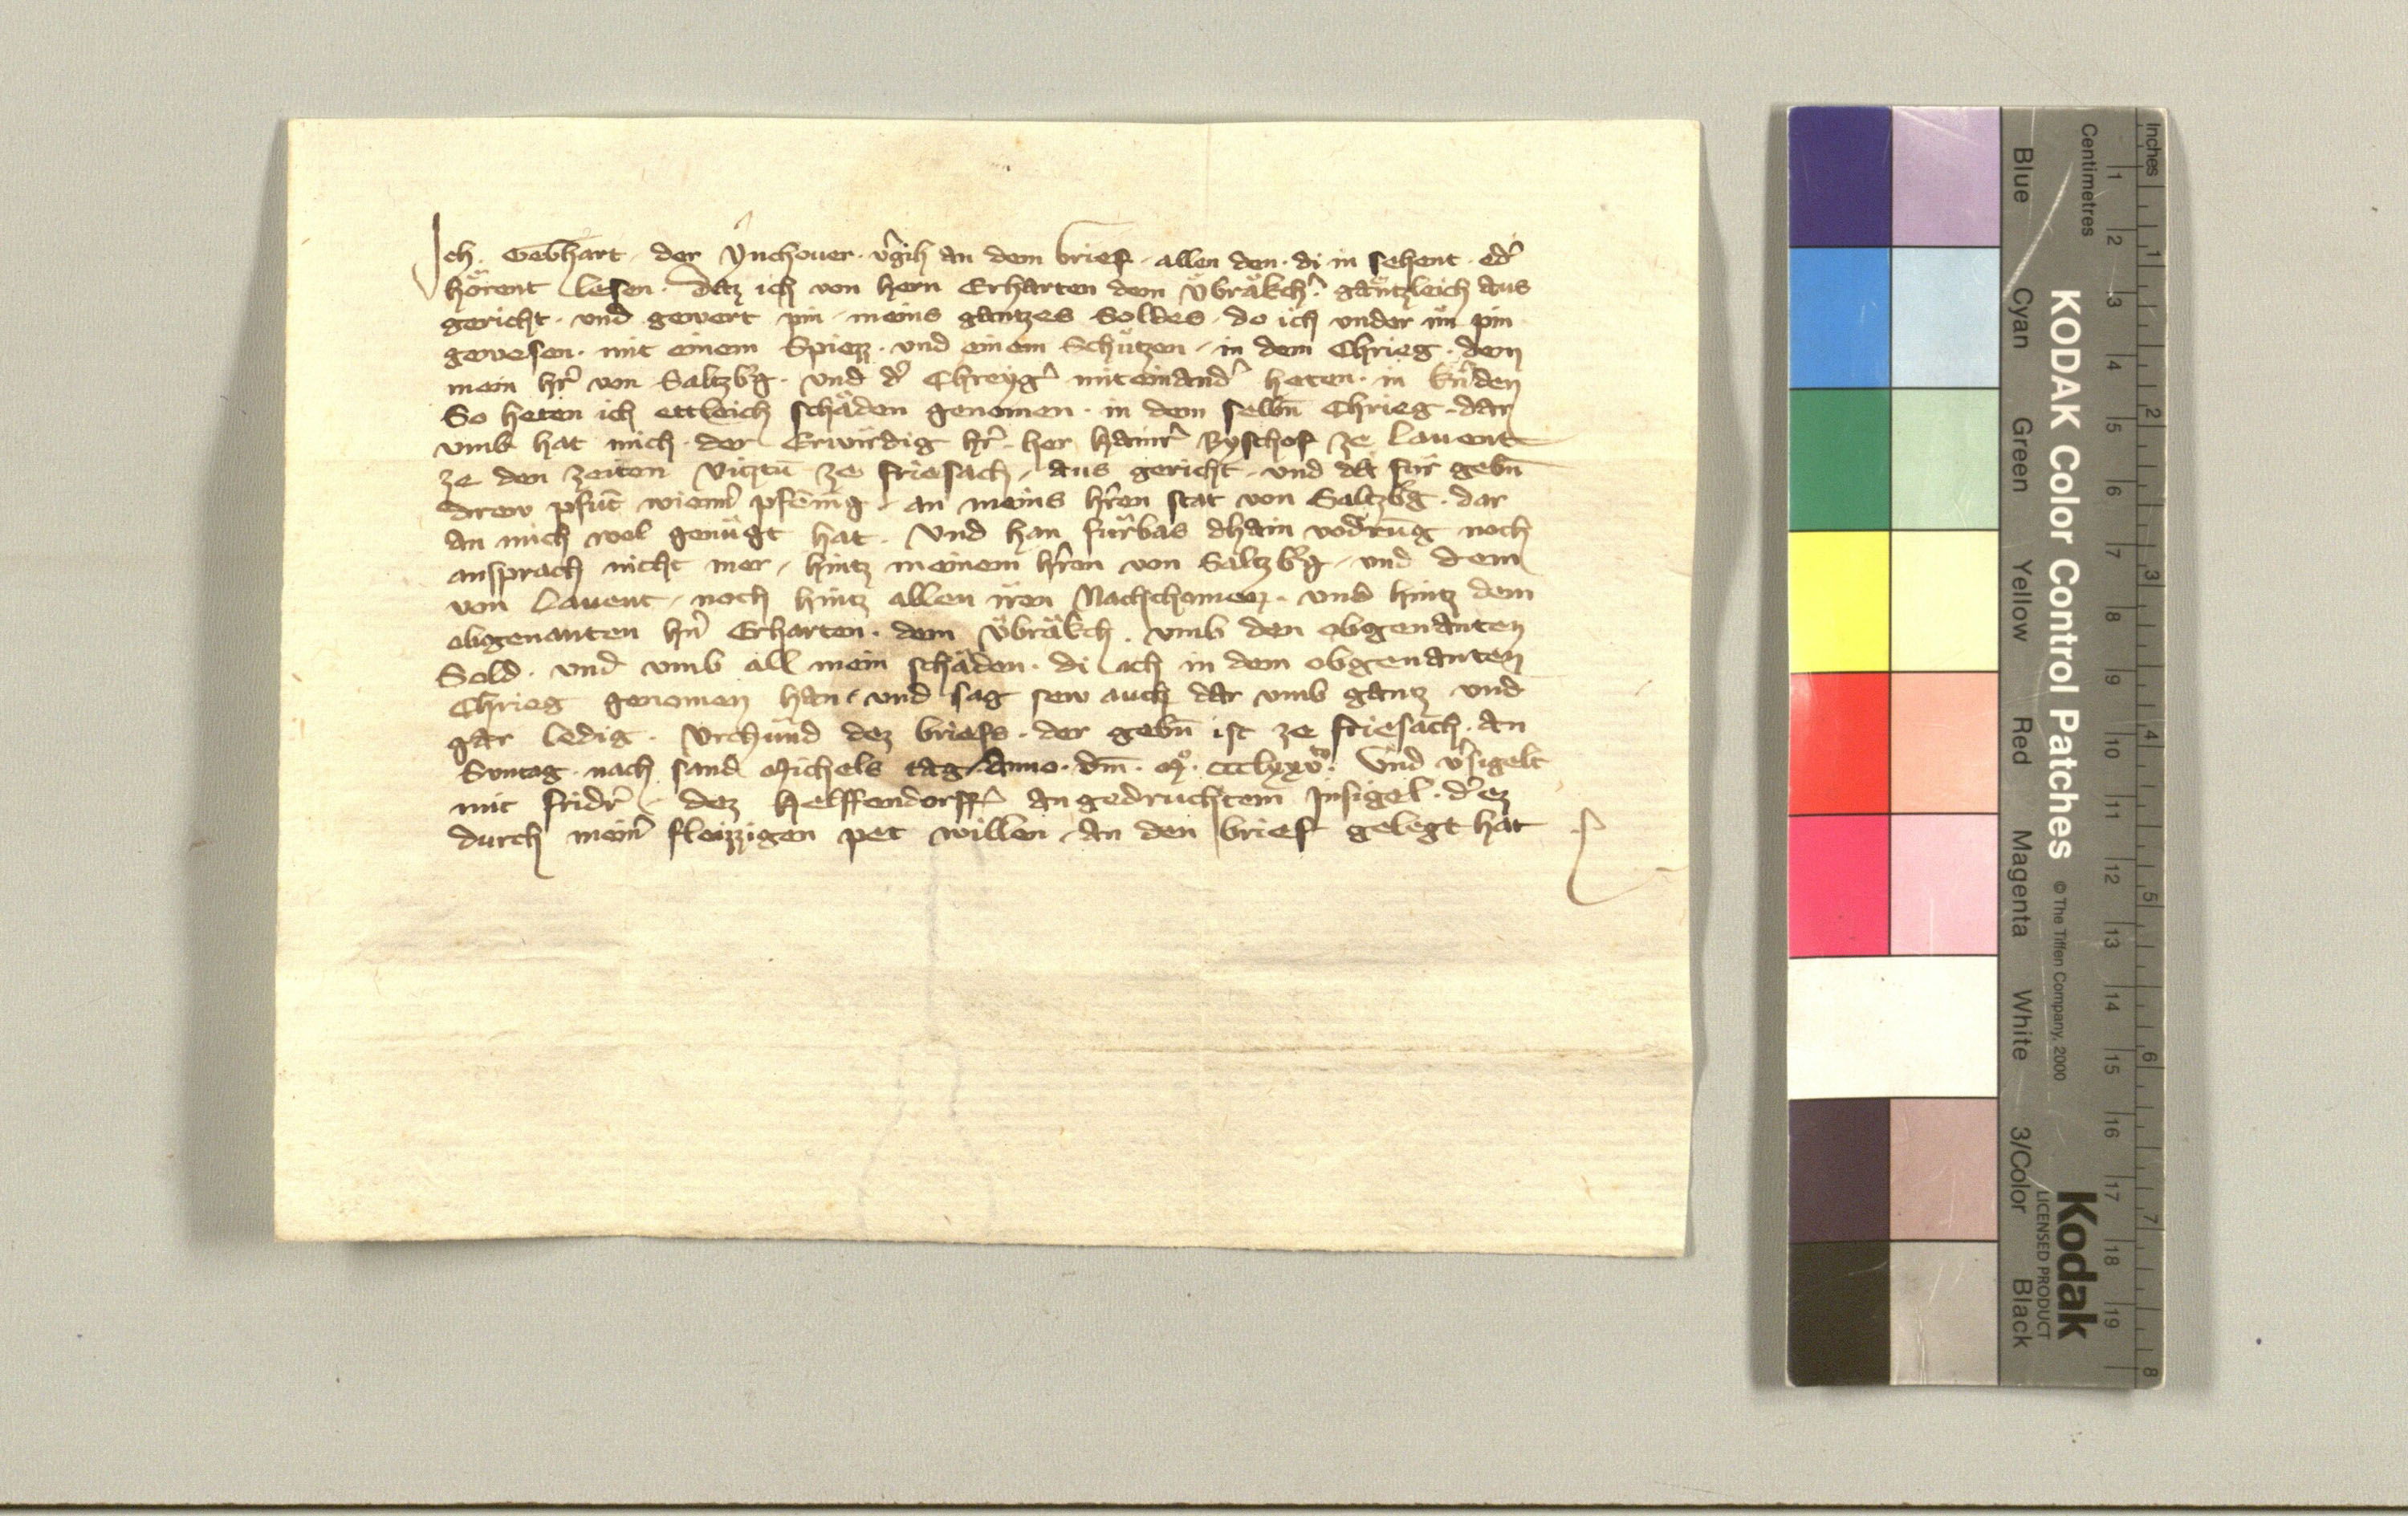 Ich. Gebhart der Ynchouer. v̓gih an dem brief. allen den. di in sehent. od̓
hörent lesen. Datz ich von hern Erharten dem v̈bräkch̓. gäntzleich aus
gericht. vnd gewert pin. meins gantzes Soldes. do ich vnder im pin
gewesen. mit einem Spiezz. vnd einem Schützen. in dem Chrieg. dem
mein hr̓ von Saltzb̓g. vnd d̓ Chreyg̓ miteinand̓ heten. in
So heten ich ettleich schäden genomen. in dem selbn̄ Chrieg. dar
vmb hat mich. der Erwirdig hr̓. her hainr̓ Byschof ze Lauent
ze den zeiten Vitztū ze friesach, aus gericht. vnd da für gebn̄
drew pfūt wienn̓ pfēnīg. an meins hr̓en stat von Saltzb̓g. dar
an mich wol genügt hat. Vnd han fürbas dhain vodrūg noch
ansprach nicht mer, hintz meinem hr̓en von Saltzb̓g, vnd dem
von Lauent, noch hintz allen iren Nachchomen. vnd hintz dem
obgenanten hn̓ Erharten. dem v̈bräkch. vmb den obgenanten
Sold. vnd vmb all mein schäden. di ich in dem obgenanten
Chrieg genomen han, vnd sag sew auch dar vmb gantz vnd
gar ledig. Vrchünd dez briefs. der gebn̄ ist ze friesach. An
Suntag. nach sand Michels tag. Anno. dm̄. M̊. ccclxxv̊to. Vnd v̓sigelt
mit fridr̓ dez Helffendorff̓ angedruchtem Insigel. d̓ ez
durch mein̓ fleizzigen pet willen, an den brief gelegt hat
KODAK Color Control Patches © The Tiffen Company, 2000
Kodak
LICENSED PRODUCT
Blue Cyan Green Yellow Red Magenta White 3/Color Black
Inches 1 2 3 4 5 6 7 8
Centimetres 1 2 3 4 5 6 7 8 9 10 11 12 13 14 15 16 17 18 19